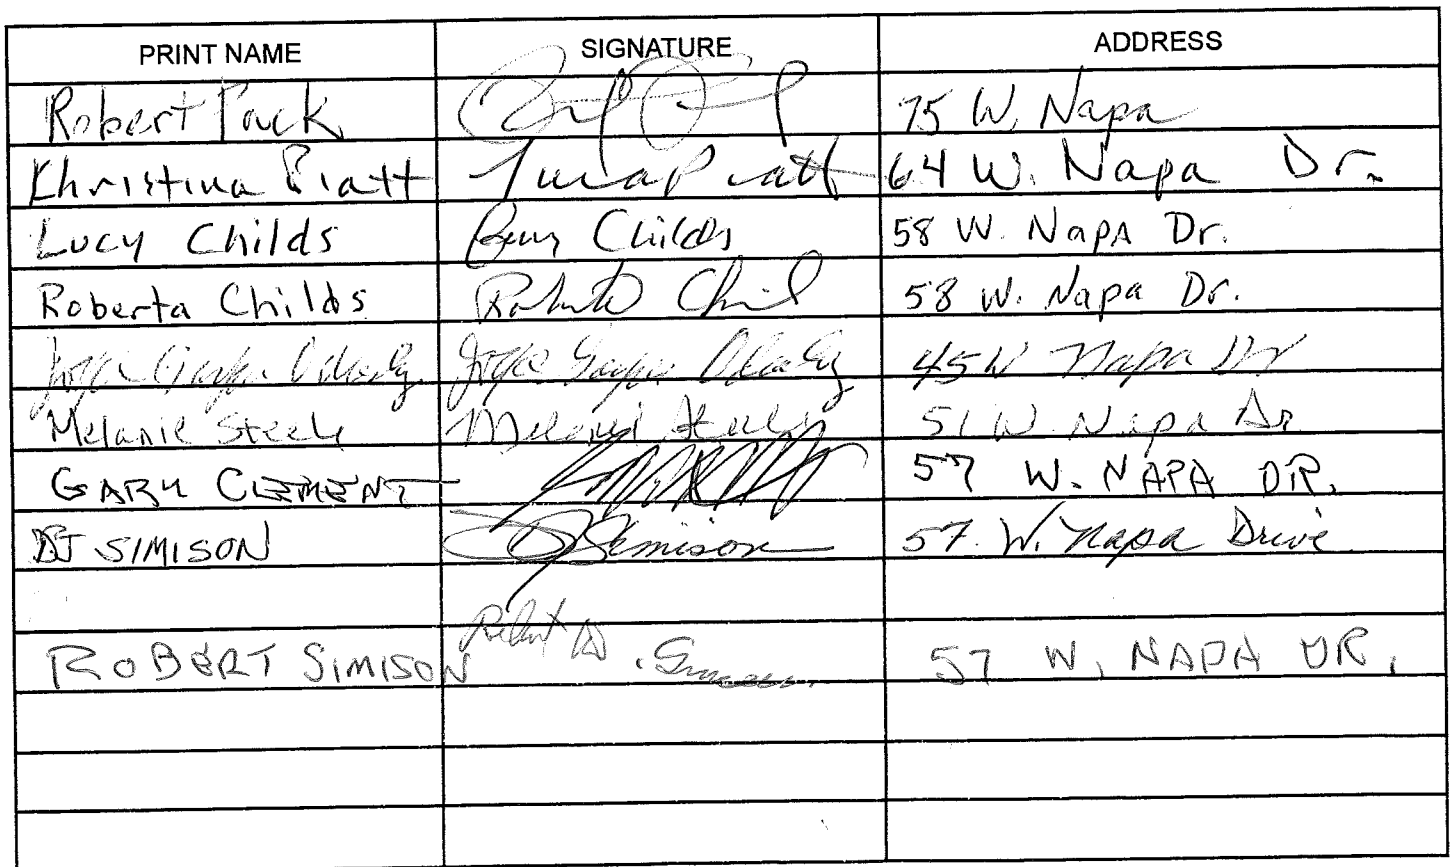 PRINT NAME SIGNATURE ADDRESS
Robert Pack 75 W. Napa
Khristina Piatt Piatt 64 W. Napa Dr.
Lucy Childs Childs 58 W. Napa Dr.
Roberta Childs Roberta Child 58 W. Napa Dr.
Joyce Joyce 45 W Napa Dr
Melanie Steele Melanie Steele 51 W. Napa Dr
GARY CLEMENT 57 W. NAPA DR.
DJ SIMISON DJ Simison 57 W. Napa Drive
ROBERT SIMISON Robert D. Simison 57 W. NAPA DR.